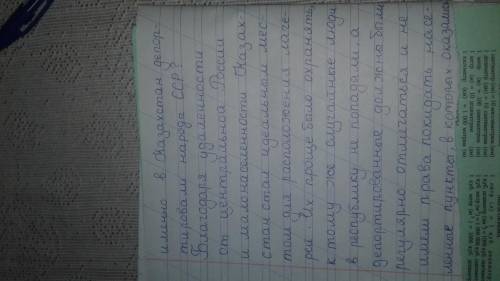 именно в Казахстан депор-
тировали народа ССР?
Благодоря удаленности
от центральной России
и малонаселенности Казах-
стан стал идеальным мес-
том для расположения лаге-
рей. Их проще было охранять,
к тому же случайные люди
в республику не попадали, а
депортированные должны были
регулярно отмечаться и не
имели права покидать насе-
лённые пункты, в которых оказали